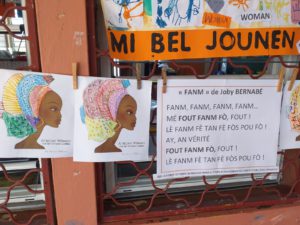 WOMAN
MI BEL JOUNEN
« FANM » de Joby BERNABÉ
FANM, FANM, FANM, FANM...
MÉ FOUT FANM FÒ, FOUT !
LÈ FANM FÈ TAN FÈ FÒS POU FÒ !
AY, AN VÉRITÉ
FOUT FANM FÒ, FOUT !
LÈ FANM FÈ TAN FÈ FÒS POU FÒ !